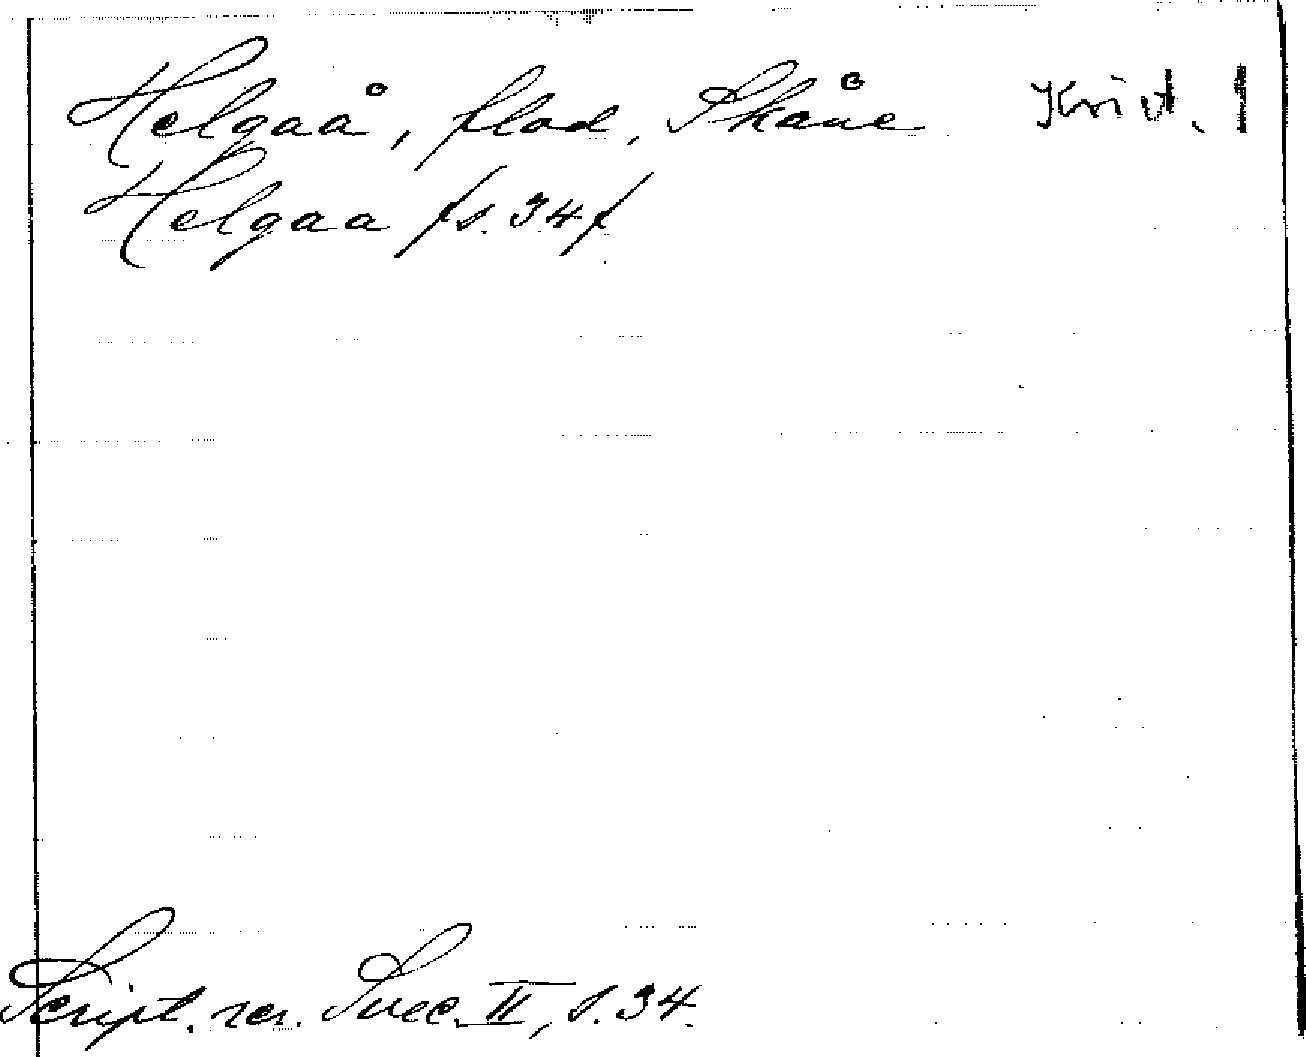 Helgaå, flod, Skåne Krist. l
Helgaa /s. 34/
Script. rer. Suec. II, s. 34.